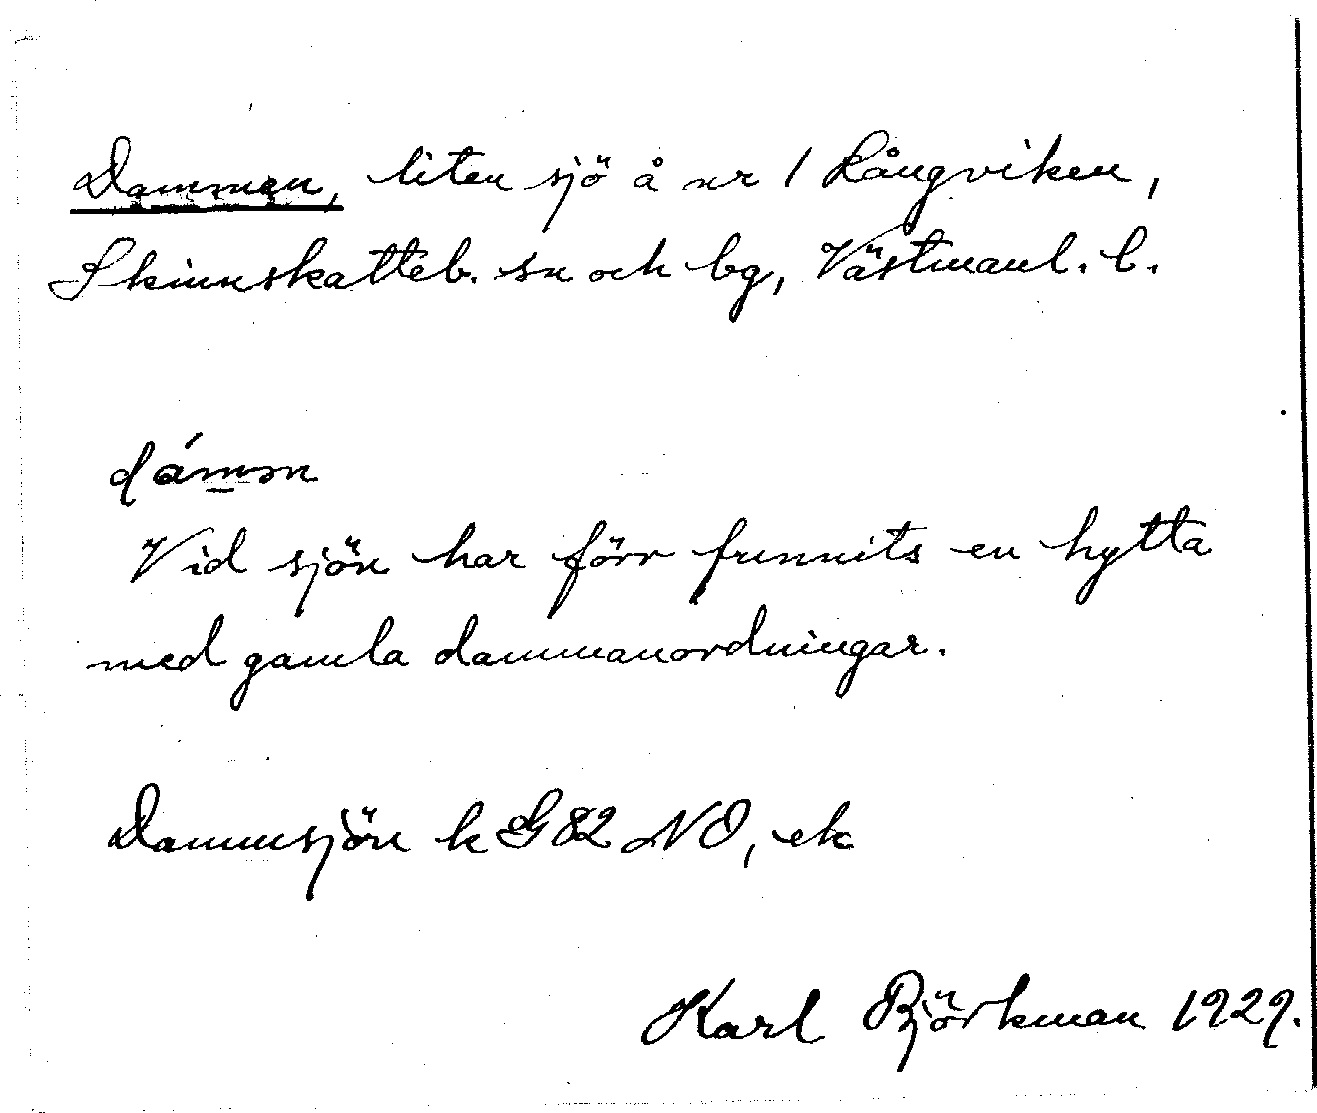 Dammen, liten sjö å nr 1 Långviken,
Skinnskatteb. sn och bg, Västmanl. l.
dámən
Vid sjön har förr funnits en hytta
med gamla dammanordningar.
Dammsjön k G 82 NO, ek
Karl Björkman 1929.